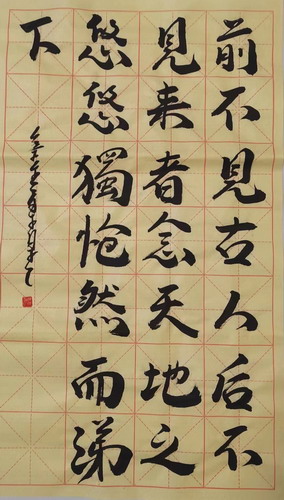 前不見古人后不
見来者念天地之
悠悠獨怆然而涕
下